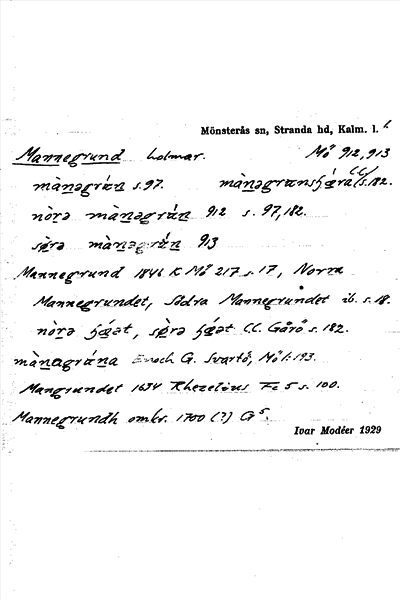 Mönsterås sn, Stranda hd, Kalm. l.
Mannegrund holmar. Mö 912, 913
màn̲əgrán̲ s. 97. s. 182.
nòrə màn̲əgrán̲ 912 s. 97, 182.
sø̀rə màn̲əgrán̲ 913
Mannegrund 1846 K Mö 217 s. 17, Norra
Mannegrundet, Södra Mannegrundet ib. s. 18.
nòrə sø̀rə CC. Gårö s. 182.
Enoch G. Svartö, Mö 1:193.
Mangrundet 1634 Rhezelius Fc 5 s. 100.
Mannegrundh omkr. 1700 (?) G 5.
Ivar Modéer 1929